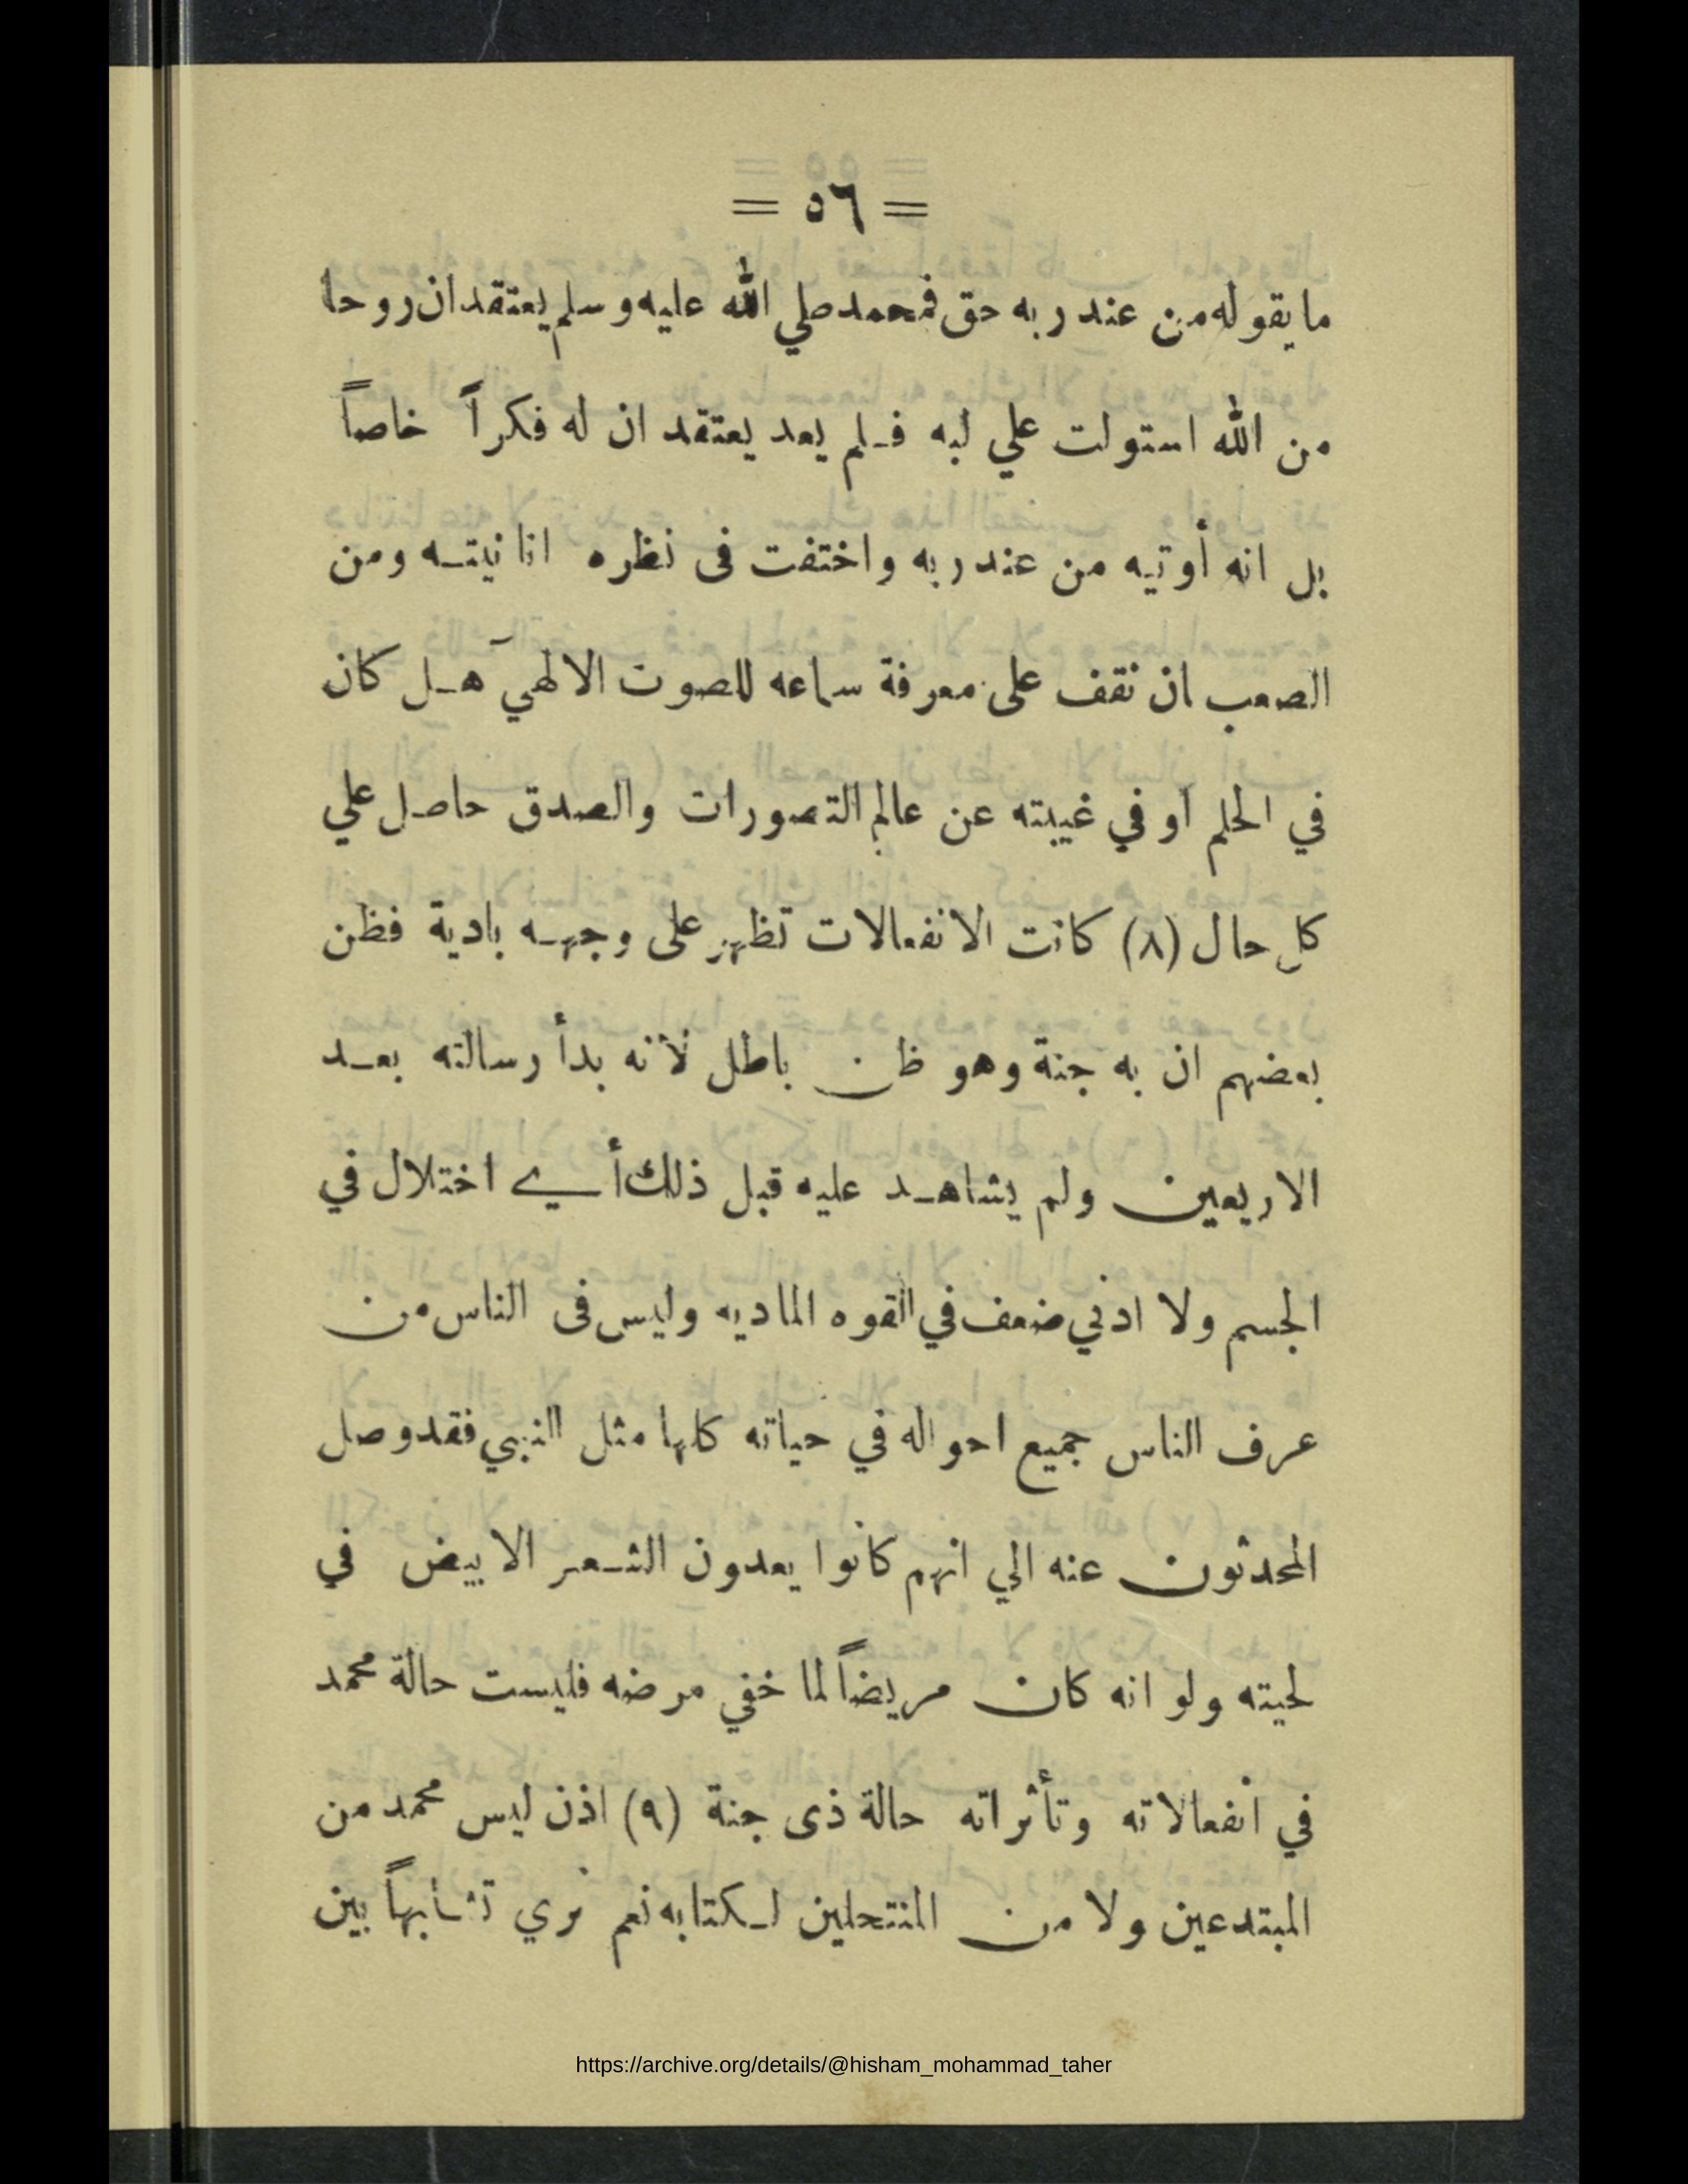 = ٥٦ =
ما يقوله من عند ربه حق فمحمد صلي الله عليه وسلم يعتقد ان روحا
من الله استولت علي لبه فلم يعد يعتقد ان له فكراً خاصاً
بل انه أوتيه من عند ربه واختفت فى نظره انانيته ومن
الصعب ان نقف على معرفة سماعه للصوت الالهي هل كان
في الحلم او في غيبته عن عالم التصورات والصدق حاصل علي
كل حال (٨) كانت الانفعالات تظهر على وجهه بادية فظن
بعضهم ان به جنة وهو ظن باطل لأنه بدأ رسالته بعد
الاربعين ولم يشاهد عليه قبل ذلك أي اختلال في
الجسم ولا ادني ضعف في القوه الماديه وليس فى الناس من
عرف الناس جميع احواله في حياته كلها مثل النبي فقد وصل
المحدثون عنه الي انهم كانوا يعدون الشعر الابيض في
لحيته ولو انه كان مريضاً لما خفي مرضه فليست حالة محمد
في انفعالاته وتأثراته حالة ذى جنة (٩) اذن ليس محمد من
المبتدعين ولا من المنتحلين لكتابه نعم نري تشابهاً بين
https://archive.org/details/@hisham_mohammad_taher